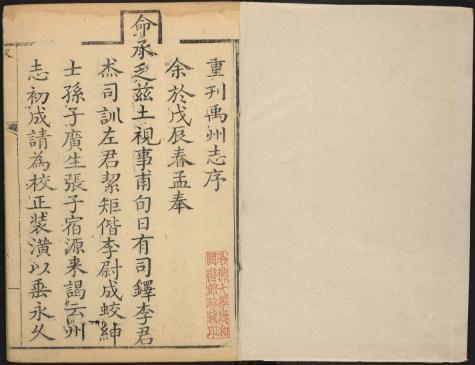 重刋禹州志序
余於戊辰春孟奉
命承乏茲土視事甫旬日有司鐸李君
杰司訓左君絜矩偕李尉成蛟紳
士孫子廣生張子宿源来謁云州
志初成請為校正装潢以垂永久
哈佛大學漢和
圖書館珍藏印